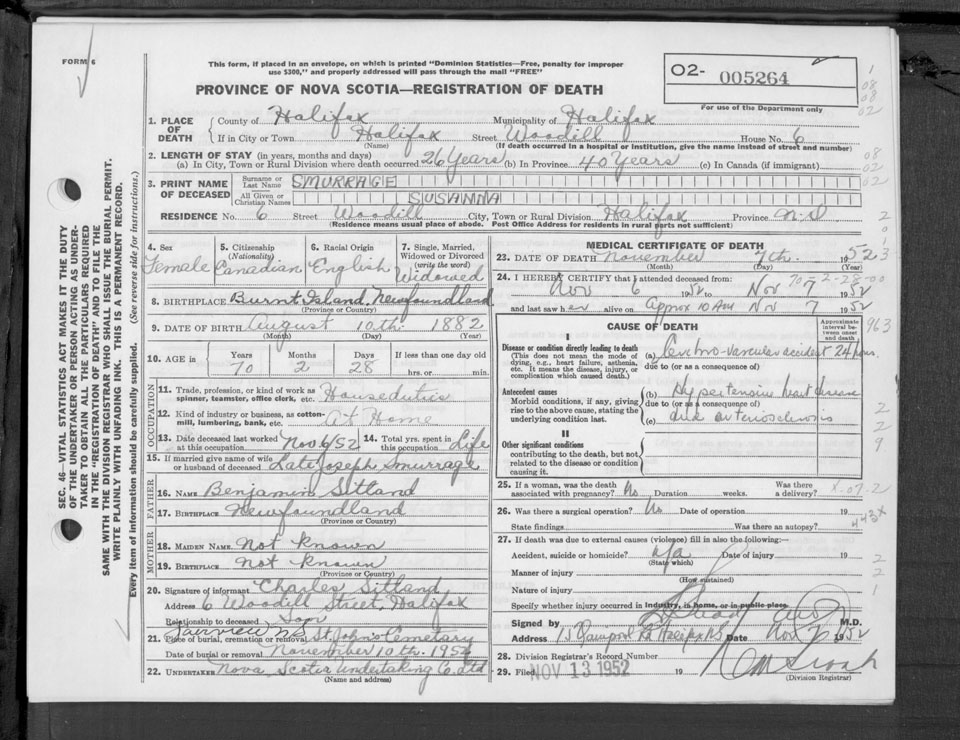 FORM 6
This form, if placed in an envelope, on which is printed "Dominion Statistics—Free, penalty for improper
use $300," and properly addressed will pass through the mail "FREE"
PROVINCE OF NOVA SCOTIA—REGISTRATION OF DEATH
02- 005264
For use of the Department only
SEC. 46—VITAL STATISTICS ACT MAKES IT THE DUTY
OF THE UNDERTAKER OR PERSON ACTING AS UNDER-
TAKER TO OBTAIN ALL THE PARTICULARS REQUIRED
IN THE "REGISTRATION OF DEATH" AND TO FILE THE
SAME WITH THE DIVISION REGISTRAR WHO SHALL ISSUE THE BURIAL PERMIT.
WRITE PLAINLY WITH UNFADING INK. THIS IS A PERMANENT RECORD.
Every item of information should be carefully supplied. (See reverse side for instructions.)
1. PLACE OF DEATH
County of Halifax Municipality of Halifax
If in City or Town Halifax Street Woodill House No. 6
(Name) (If death occurred in a hospital or institution, give the name instead of street and number)
2. LENGTH OF STAY (in years, months and days)
(a) In City, Town or Rural Division where death occurred 26 Years (b) In Province 40 Years (c) In Canada (if immigrant)
3. PRINT NAME OF DECEASED
Surname or Last Name SMURRAGE
All Given or Christian Names SUSANNA
RESIDENCE No. 6 Street Woodill City, Town or Rural Division Halifax Province N.S
(Residence means usual place of abode. Post Office Address for residents in rural parts not sufficient)
4. Sex Female
5. Citizenship (Nationality) Canadian
6. Racial Origin English
7. Single, Married, Widowed or Divorced (write the word) Widowed
8. BIRTHPLACE Burnt Island, Newfoundland
(Province or Country)
9. DATE OF BIRTH August 10th 1882
(Month) (Day) (Year)
10. AGE in Years Months Days If less than one day old
70 2 28 hrs. or min.
OCCUPATION
11. Trade, profession, or kind of work as
spinner, teamster, office clerk, etc. Houseduties
12. Kind of industry or business, as cotton-
mill, lumbering, bank, etc. At Home
13. Date deceased last worked at this occupation Nov 6/52 14. Total yrs. spent in this occupation Life
15. If married give name of wife
or husband of deceased Late Joseph Smurrage
FATHER
16. NAME Benjamin Sitland
17. BIRTHPLACE Newfoundland
(Province or Country)
MOTHER
18. MAIDEN NAME Not known
19. BIRTHPLACE Not known
(Province or Country)
20. Signature of informant Charles Sitland
Address 6 Woodill Street, Halifax
Relationship to deceased Son
Fairview N.S
21. Place of burial, cremation or removal St. John's Cemetary
Date of burial or removal November 10th 1952
22. UNDERTAKER Nova Scotia Undertaking Co. Ltd
(Name and address)
MEDICAL CERTIFICATE OF DEATH
23. DATE OF DEATH November 7th 1952
(Month) (Day)
24. I HEREBY CERTIFY that I attended deceased from:
Nov 6 1952 to Nov 7 1952
and last saw her alive on Approx 10 AM Nov 7 1952
CAUSE OF DEATH
Approximate interval between onset and death
I
Disease or condition directly leading to death
(This does not mean the mode of
dying, e.g., heart failure, asthenia,
etc. It means the disease, injury, or
complication which caused death.)
(a) Cerebro-vascular accident 24 hours
due to (or as a consequence of)
Antecedent causes
Morbid conditions, if any, giving
rise to the above cause, stating the
underlying condition last.
(b) Hypertensive heart disease
due to (or as a consequence of)
(c) and arteriosclerosis
II
Other significant conditions
contributing to the death, but not
related to the disease or condition
causing it.
25. If a woman, was the death
associated with pregnancy? No Duration weeks. Was there a delivery?
26. Was there a surgical operation? No Date of operation 19
State findings Was there an autopsy?
27. If death was due to external causes (violence) fill in also the following:
Accident, suicide or homicide? n/a Date of injury 19
(State which)
Manner of injury
(How sustained)
Nature of injury
Specify whether injury occurred in industry, in home, or in public place
Signed by M.D.
Address Halifax NS Date Nov 1952
28. Division Registrar's Record Number
29. Filed NOV 13 1952 19
(Division Registrar)